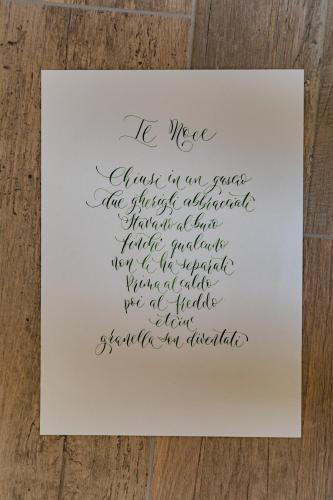 Le Noce
Chiusi in un guscio
due gherigli abbracciati
Stavano al buio
finché qualcuno
non li ha separati
Prima al caldo
poi al freddo
granella son diventati